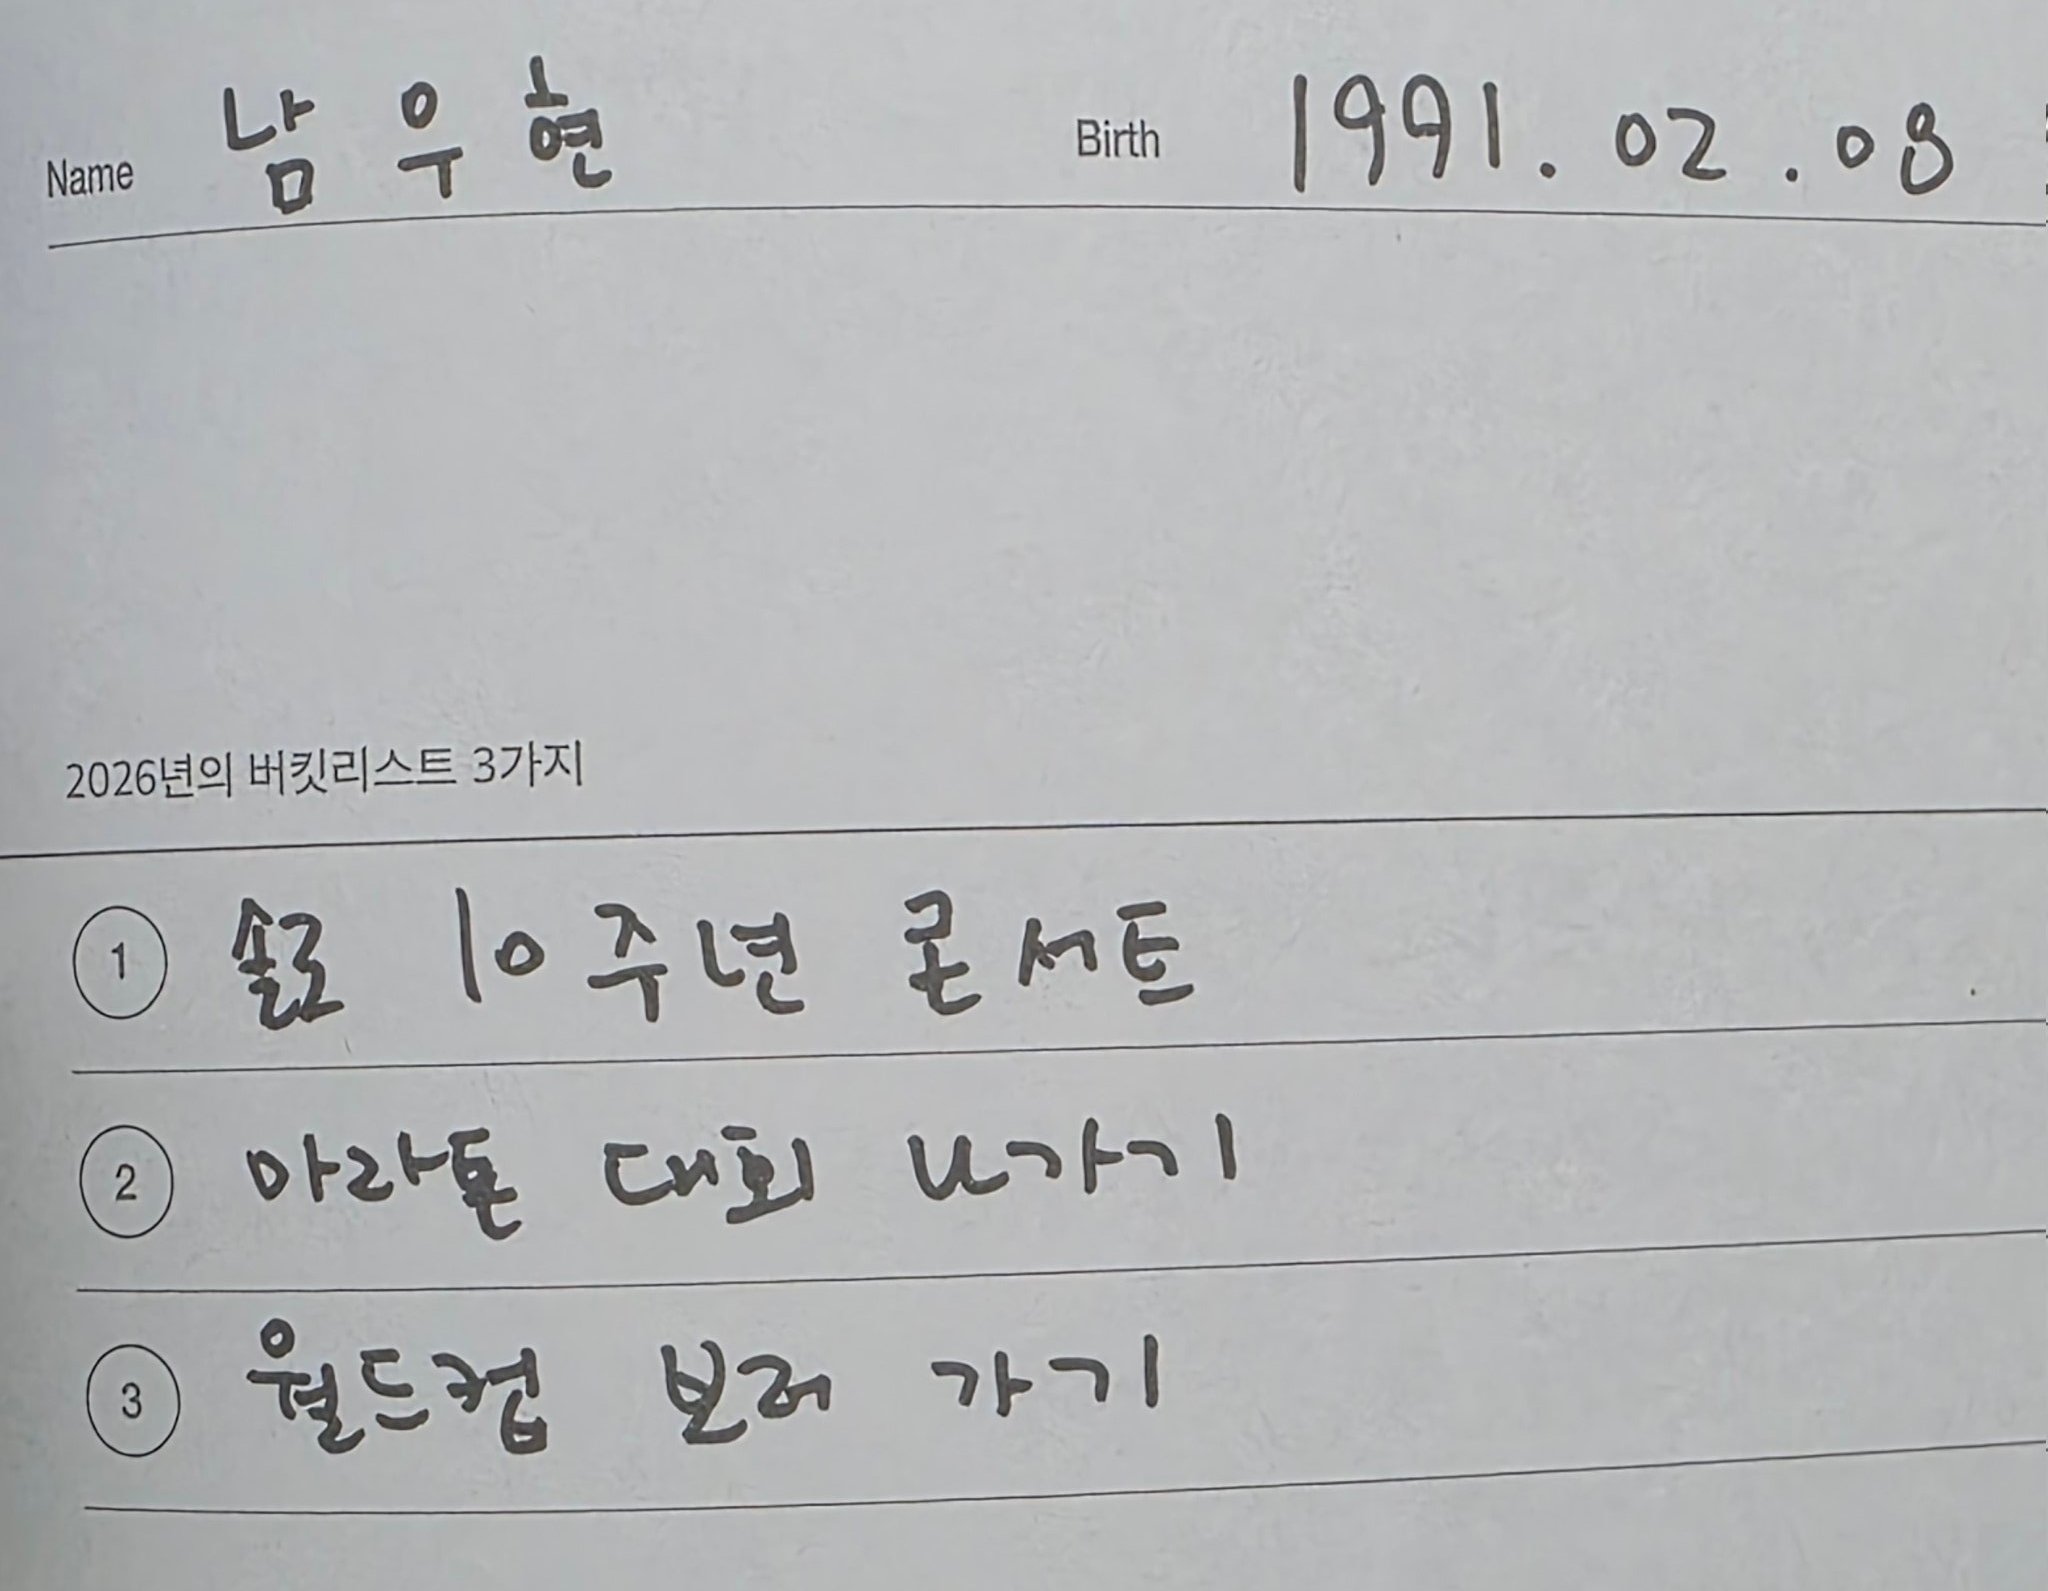 Name 남우현 Birth 1991.02.08
2026년의 버킷리스트 3가지
1 솔로 10주년 콘서트
2 마라톤 대회 나가기
3 월드컵 보러 가기